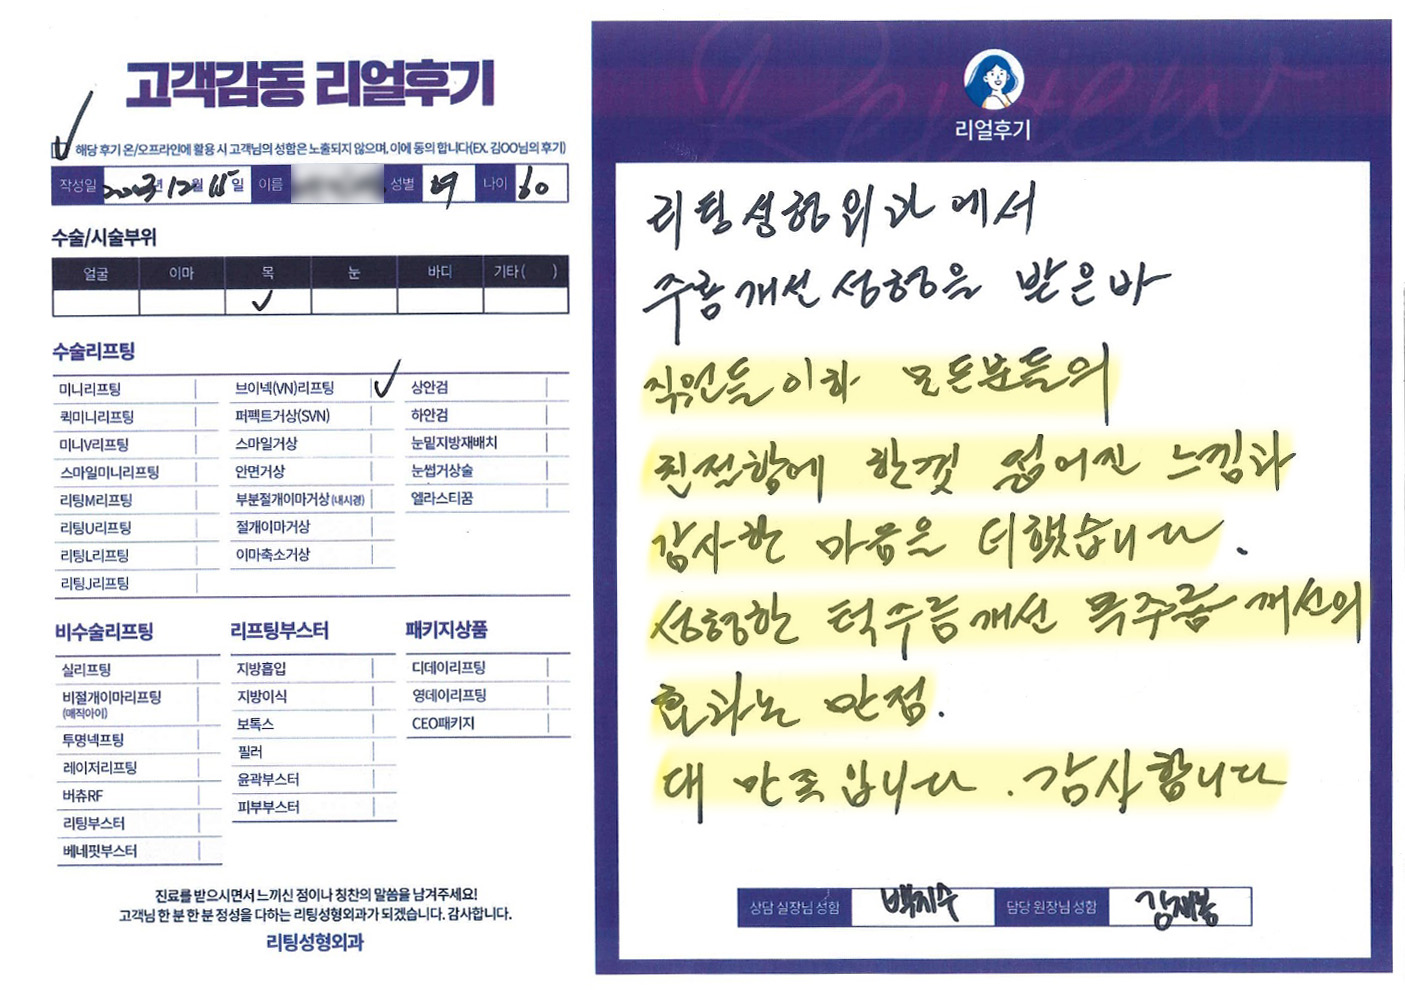 고객감동 리얼후기
해당 후기 온/오프라인에 활용 시 고객님의 성함은 노출되지 않으며, 이에 동의 합니다(EX. 김OO님의 후기)
작성일 2023년 12월 15일 이름 성별 여 나이 60
수술/시술부위
얼굴 이마 목 눈 바디 기타( )
수술리프팅
미니리프팅 브이넥(VN)리프팅 상안검
퀵미니리프팅 퍼펙트거상(SVN) 하안검
미니V리프팅 스마일거상 눈밑지방재배치
스마일미니리프팅 안면거상 눈썹거상술
리팅M리프팅 부분절개이마거상(내시경) 엘라스티꿈
리팅U리프팅 절개이마거상
리팅L리프팅 이마축소거상
리팅J리프팅
비수술리프팅 리프팅부스터 패키지상품
실리프팅 지방흡입 디데이리프팅
비절개이마리프팅 지방이식 영데이리프팅
(매직아이) 보톡스 CEO패키지
투명넥프팅 필러
레이저리프팅 윤곽부스터
버츄RF 피부부스터
리팅부스터
베네핏부스터
진료를 받으시면서 느끼신 점이나 칭찬의 말씀을 남겨주세요!
고객님 한 분 한 분 정성을 다하는 리팅성형외과가 되겠습니다. 감사합니다.
리팅성형외과
Review
리얼후기
리팅성형외과에서
주름개선성형을 받은바
직원들이하 모든분들의
친절함에 한껏 젊어진 느낌과
감사한 마음을 더했습니다.
성형한 턱주름개선 목주름 개선의
효과는 만점.
대 만족입니다. 감사합니다
상담 실장님 성함 백지수 담당 원장님 성함 강재봉